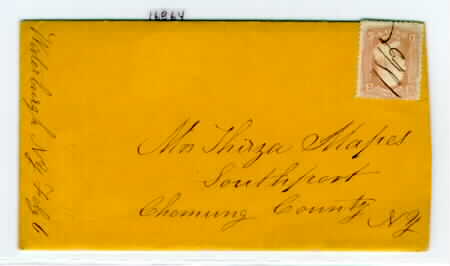 16964
Waterburgh NY Feby 6
Mrs Thirza Mapes
Southport
Chemung County NY